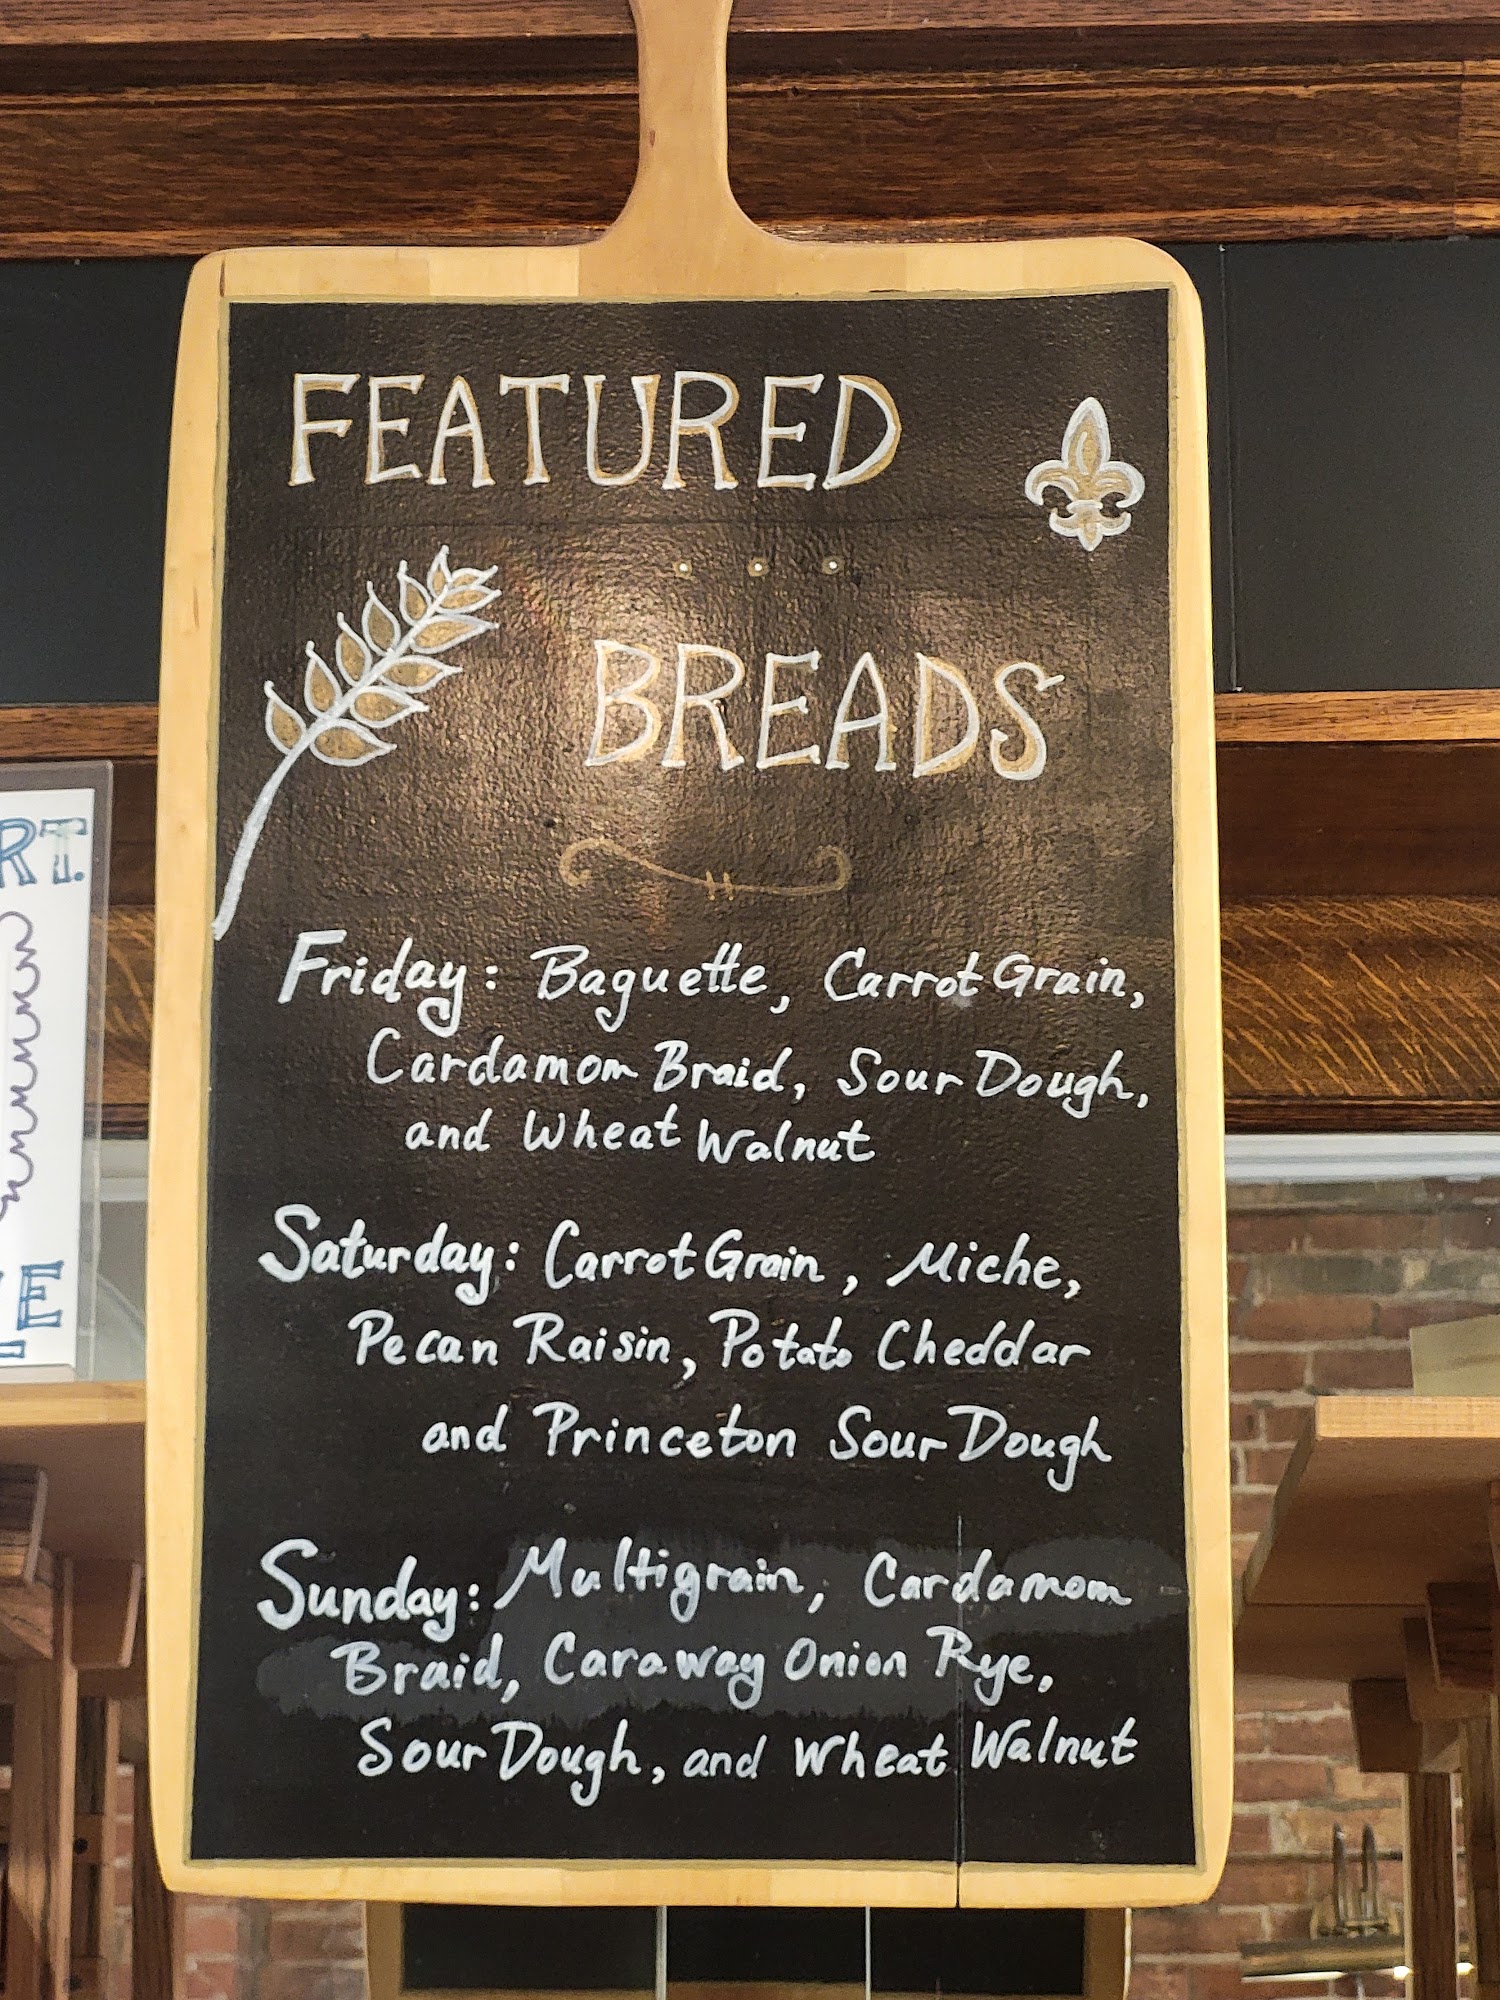 FEATURED
BREADS
Friday: Baguette, Carrot Grain,
Cardamom Braid, Sour Dough,
and Wheat Walnut
Saturday: Carrot Grain, Miche,
Pecan Raisin, Potato Cheddar
and Princeton Sour Dough
Sunday: Multigrain, Cardamom
Braid, Caraway Onion Rye,
Sour Dough, and Wheat Walnut
RT.
E